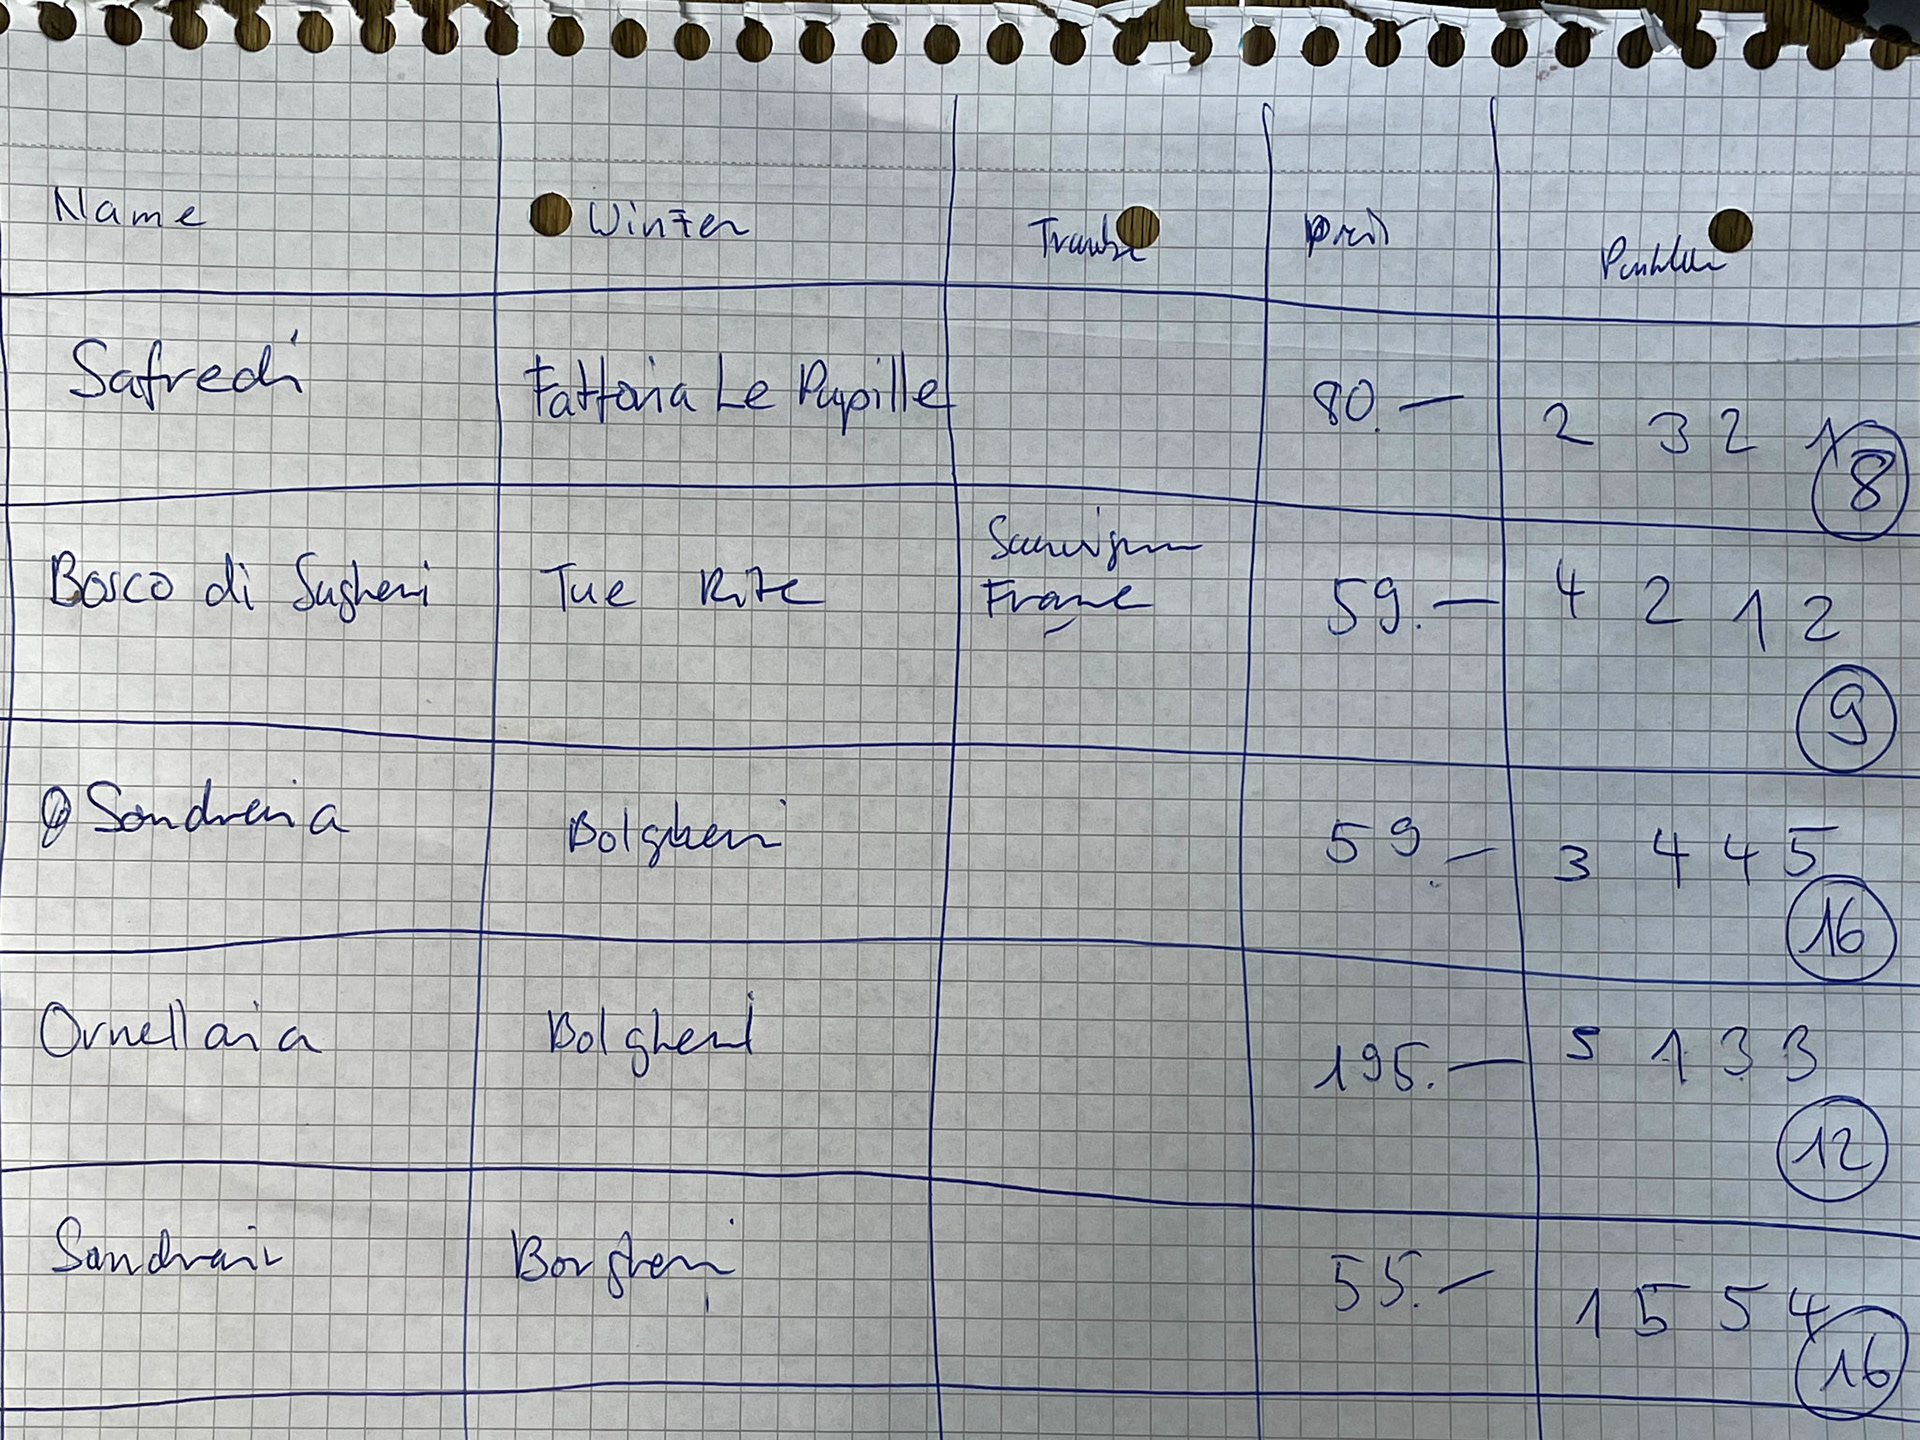 Name Winzer Traube Preis Punkte
Safredi Fattoria Le Pupille 80.— 2 3 2 1 8
Sauvignon
Bosco di Sugheri Tue Rite Franc 59.— 4 2 1 2
9
Sondreria Bolgheri 59.— 3 4 4 5
16
Ornellaia Bolgheri 195.— 5 1 3 3
12
Sondraia Borgheri 55.— 1 5 5 4
16